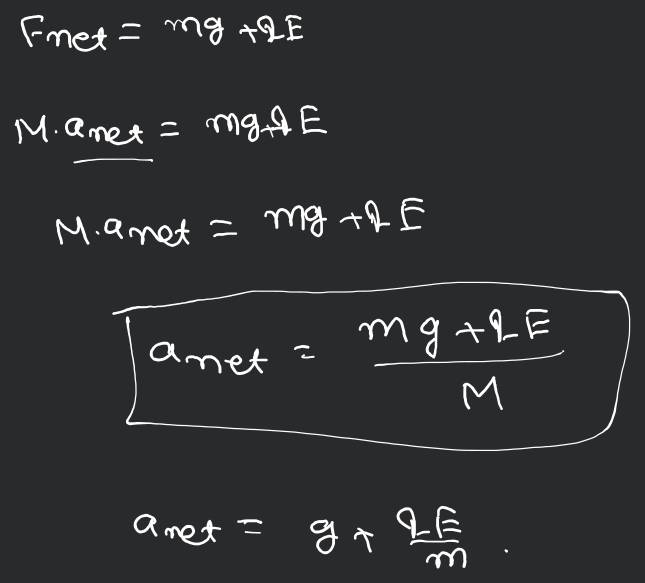 Fnet = mg + qE
M.anet = mg + qE
M.anet = mg + qE
anet = mg + qE / M
anet = g + qE / m .